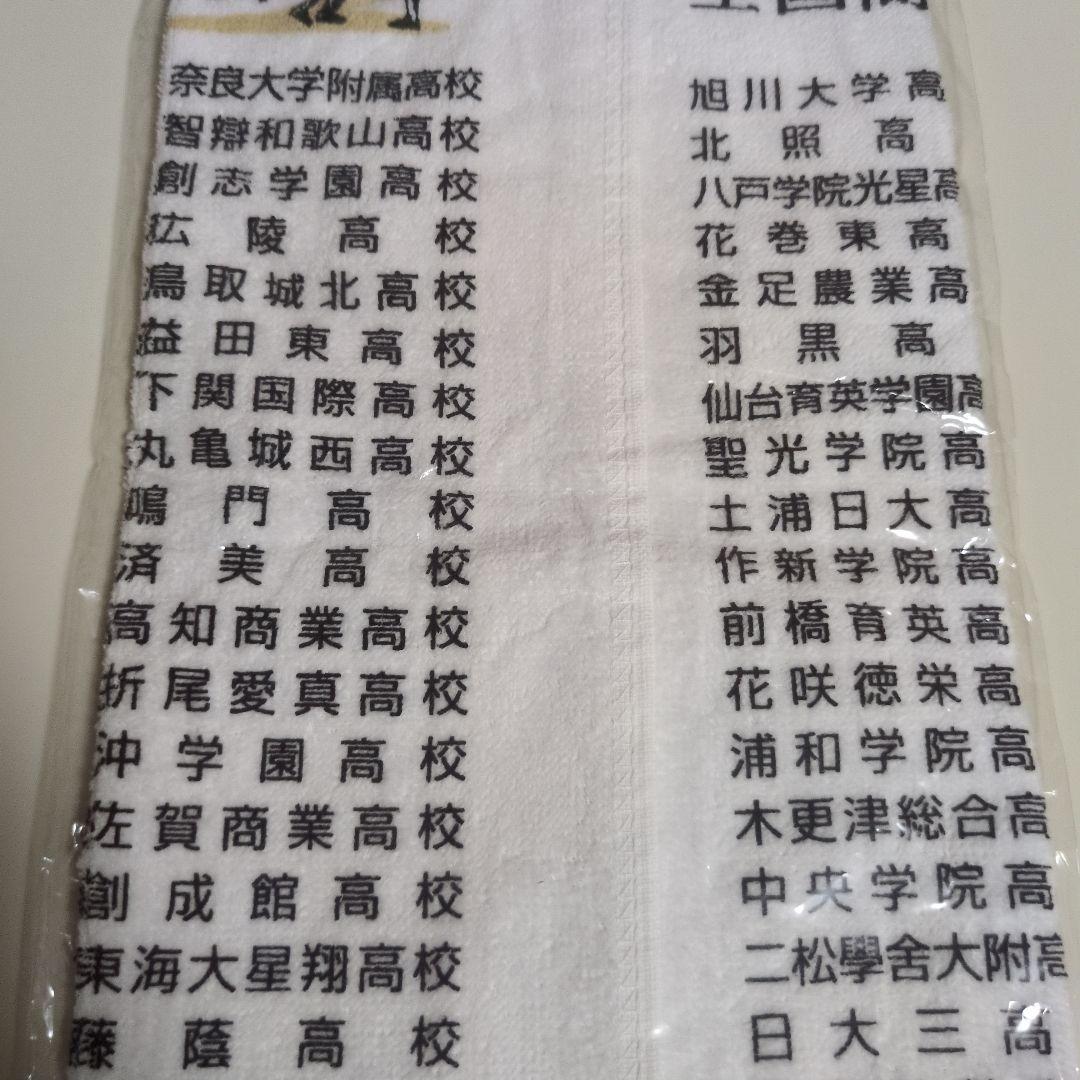 奈良大学附属高校
智辯和歌山高校
創志学園高校
広陵高校
鳥取城北高校
益田東高校
下関国際高校
丸亀城西高校
鳴門高校
済美高校
高知商業高校
折尾愛真高校
沖学園高校
佐賀商業高校
創成館高校
東海大星翔高校
藤蔭高校
全国高
旭川大学高
北照高
八戸学院光星高
花巻東高
金足農業高
羽黒高
仙台育英学園高
聖光学院高
土浦日大高
作新学院高
前橋育英高
花咲徳栄高
浦和学院高
木更津総合高
中央学院高
二松學舎大附高
日大三高